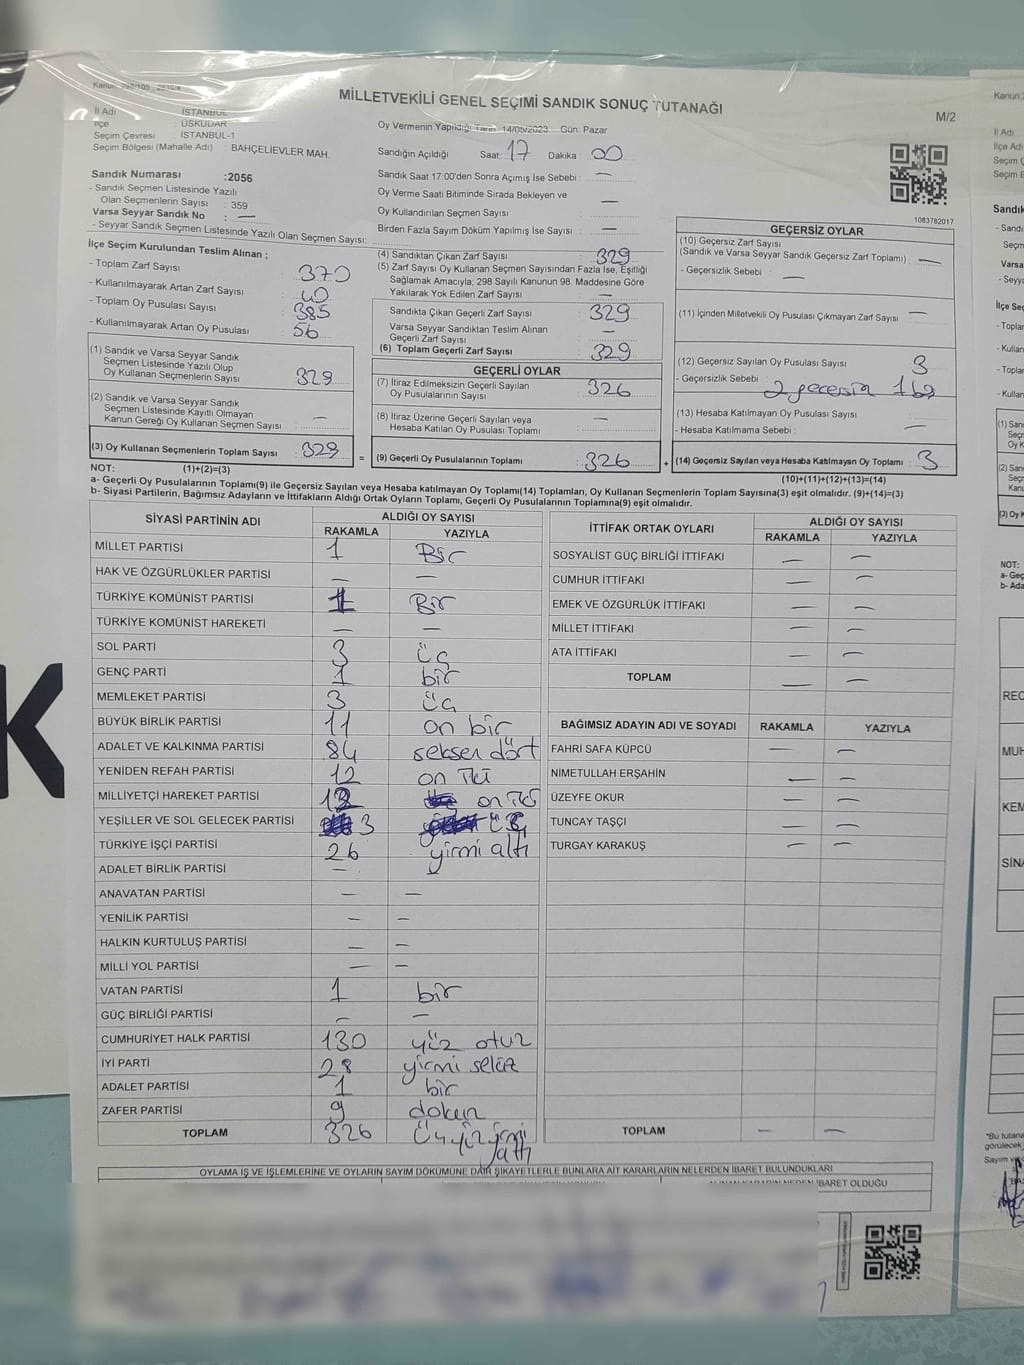 MİLLETVEKİLİ GENEL SEÇİMİ SANDIK SONUÇ TUTANAĞI
M/2
İl Adı : İSTANBUL
İlçe : ÜSKÜDAR
Seçim Çevresi : İSTANBUL-1
Seçim Bölgesi (Mahalle Adı) : BAHÇELİEVLER MAH.
Oy Vermenin Yapıldığı Tarih 14/05/2023 Gün: Pazar
Sandığın Açıldığı Saat: 17 Dakika : 00
Sandık Numarası :2056
- Sandık Seçmen Listesinde Yazılı
Olan Seçmenlerin Sayısı : 359
Varsa Seyyar Sandık No : —
- Seyyar Sandık Seçmen Listesinde Yazılı Olan Seçmen Sayısı:
Sandık Saat 17:00'den Sonra Açımış İse Sebebi : —
Oy Verme Saati Bitiminde Sırada Bekleyen ve
Oy Kullandırılan Seçmen Sayısı : —
Birden Fazla Sayım Döküm Yapılmış İse Sayısı : —
1083782017
İlçe Seçim Kurulundan Teslim Alınan ;
- Toplam Zarf Sayısı : 370
- Kullanılmayarak Artan Zarf Sayısı : 40
- Toplam Oy Pusulası Sayısı : 385
- Kullanılmayarak Artan Oy Pusulası : 56
(1) Sandık ve Varsa Seyyar Sandık
Seçmen Listesinde Yazılı Olup
Oy Kullanan Seçmenlerin Sayısı : 329
(2) Sandık ve Varsa Seyyar Sandık
Seçmen Listesinde Kayıtlı Olmayan
Kanun Gereği Oy Kullanan Seçmen Sayısı : —
(3) Oy Kullanan Seçmenlerin Toplam Sayısı : 329 =
(4) Sandıktan Çıkan Zarf Sayısı : 329
(5) Zarf Sayısı Oy Kullanan Seçmen Sayısından Fazla İse, Eşitliği
Sağlamak Amacıyla; 298 Sayılı Kanunun 98. Maddesine Göre
Yakılarak Yok Edilen Zarf Sayısı : —
Sandıkta Çıkan Geçerli Zarf Sayısı : 329
Varsa Seyyar Sandıktan Teslim Alınan
Geçerli Zarf Sayısı : —
(6) Toplam Geçerli Zarf Sayısı : 329
GEÇERLİ OYLAR
(7) İtiraz Edilmeksizin Geçerli Sayılan
Oy Pusulalarının Sayısı : 326
(8) İtiraz Üzerine Geçerli Sayılan veya
Hesaba Katılan Oy Pusulası Toplamı : —
(9) Geçerli Oy Pusulalarının Toplamı : 326 +
GEÇERSİZ OYLAR
(10) Geçersiz Zarf Sayısı
(Sandık ve Varsa Seyyar Sandık Geçersiz Zarf Toplamı) : —
- Geçersizlik Sebebi : —
(11) İçinden Milletvekili Oy Pusulası Çıkmayan Zarf Sayısı : —
(12) Geçersiz Sayılan Oy Pusulası Sayısı : 3
- Geçersizlik Sebebi : 2 geçersiz
(13) Hesaba Katılmayan Oy Pusulası Sayısı : —
- Hesaba Katılmama Sebebi :
(14) Geçersiz Sayılan veya Hesaba Katılmayan Oy Toplamı : 3
NOT: (1)+(2)=(3) (10)+(11)+(12)+(13)=(14)
a- Geçerli Oy Pusulalarının Toplamı(9) ile Geçersiz Sayılan veya Hesaba katılmayan Oy Toplamı(14) Toplamları, Oy Kullanan Seçmenlerin Toplam Sayısına(3) eşit olmalıdır. (9)+(14)=(3)
b- Siyasi Partilerin, Bağımsız Adayların ve İttifakların Aldığı Ortak Oyların Toplamı, Geçerli Oy Pusulalarının Toplamına(9) eşit olmalıdır.
SİYASİ PARTİNİN ADI ALDIĞI OY SAYISI
RAKAMLA YAZIYLA
MİLLET PARTİSİ 1 Bir
HAK VE ÖZGÜRLÜKLER PARTİSİ — —
TÜRKİYE KOMÜNİST PARTİSİ 1 Bir
TÜRKİYE KOMÜNİST HAREKETİ — —
SOL PARTİ 3 üç
GENÇ PARTİ 1 bir
MEMLEKET PARTİSİ 3 üç
BÜYÜK BİRLİK PARTİSİ 11 on bir
ADALET VE KALKINMA PARTİSİ 84 seksen dört
YENİDEN REFAH PARTİSİ 12 on iki
MİLLİYETÇİ HAREKET PARTİSİ 12 on iki
YEŞİLLER VE SOL GELECEK PARTİSİ 3 üç
TÜRKİYE İŞÇİ PARTİSİ 26 yirmi altı
ADALET BİRLİK PARTİSİ —
ANAVATAN PARTİSİ — —
YENİLİK PARTİSİ — —
HALKIN KURTULUŞ PARTİSİ — —
MİLLİ YOL PARTİSİ — —
VATAN PARTİSİ 1 bir
GÜÇ BİRLİĞİ PARTİSİ — —
CUMHURİYET HALK PARTİSİ 130 yüz otuz
İYİ PARTİ 28 yirmi sekiz
ADALET PARTİSİ 1 bir
ZAFER PARTİSİ 9 dokuz
TOPLAM 326 Üçyüz yirmi altı
İTTİFAK ORTAK OYLARI ALDIĞI OY SAYISI
RAKAMLA YAZIYLA
SOSYALİST GÜÇ BİRLİĞİ İTTİFAKI — —
CUMHUR İTTİFAKI — —
EMEK VE ÖZGÜRLÜK İTTİFAKI — —
MİLLET İTTİFAKI — —
ATA İTTİFAKI — —
TOPLAM — —
BAĞIMSIZ ADAYIN ADI VE SOYADI RAKAMLA YAZIYLA
FAHRİ SAFA KÜPCÜ — —
NİMETULLAH ERŞAHİN — —
ÜZEYFE OKUR — —
TUNCAY TAŞÇI — —
TURGAY KARAKUŞ — —
TOPLAM — —
OYLAMA İŞ VE İŞLEMLERİNE VE OYLARIN SAYIM DÖKÜMÜNE DAİR ŞİKAYETLERLE BUNLARA AİT KARARLARIN NELERDEN İBARET BULUNDUKLARI
İBARET OLDUĞU
K